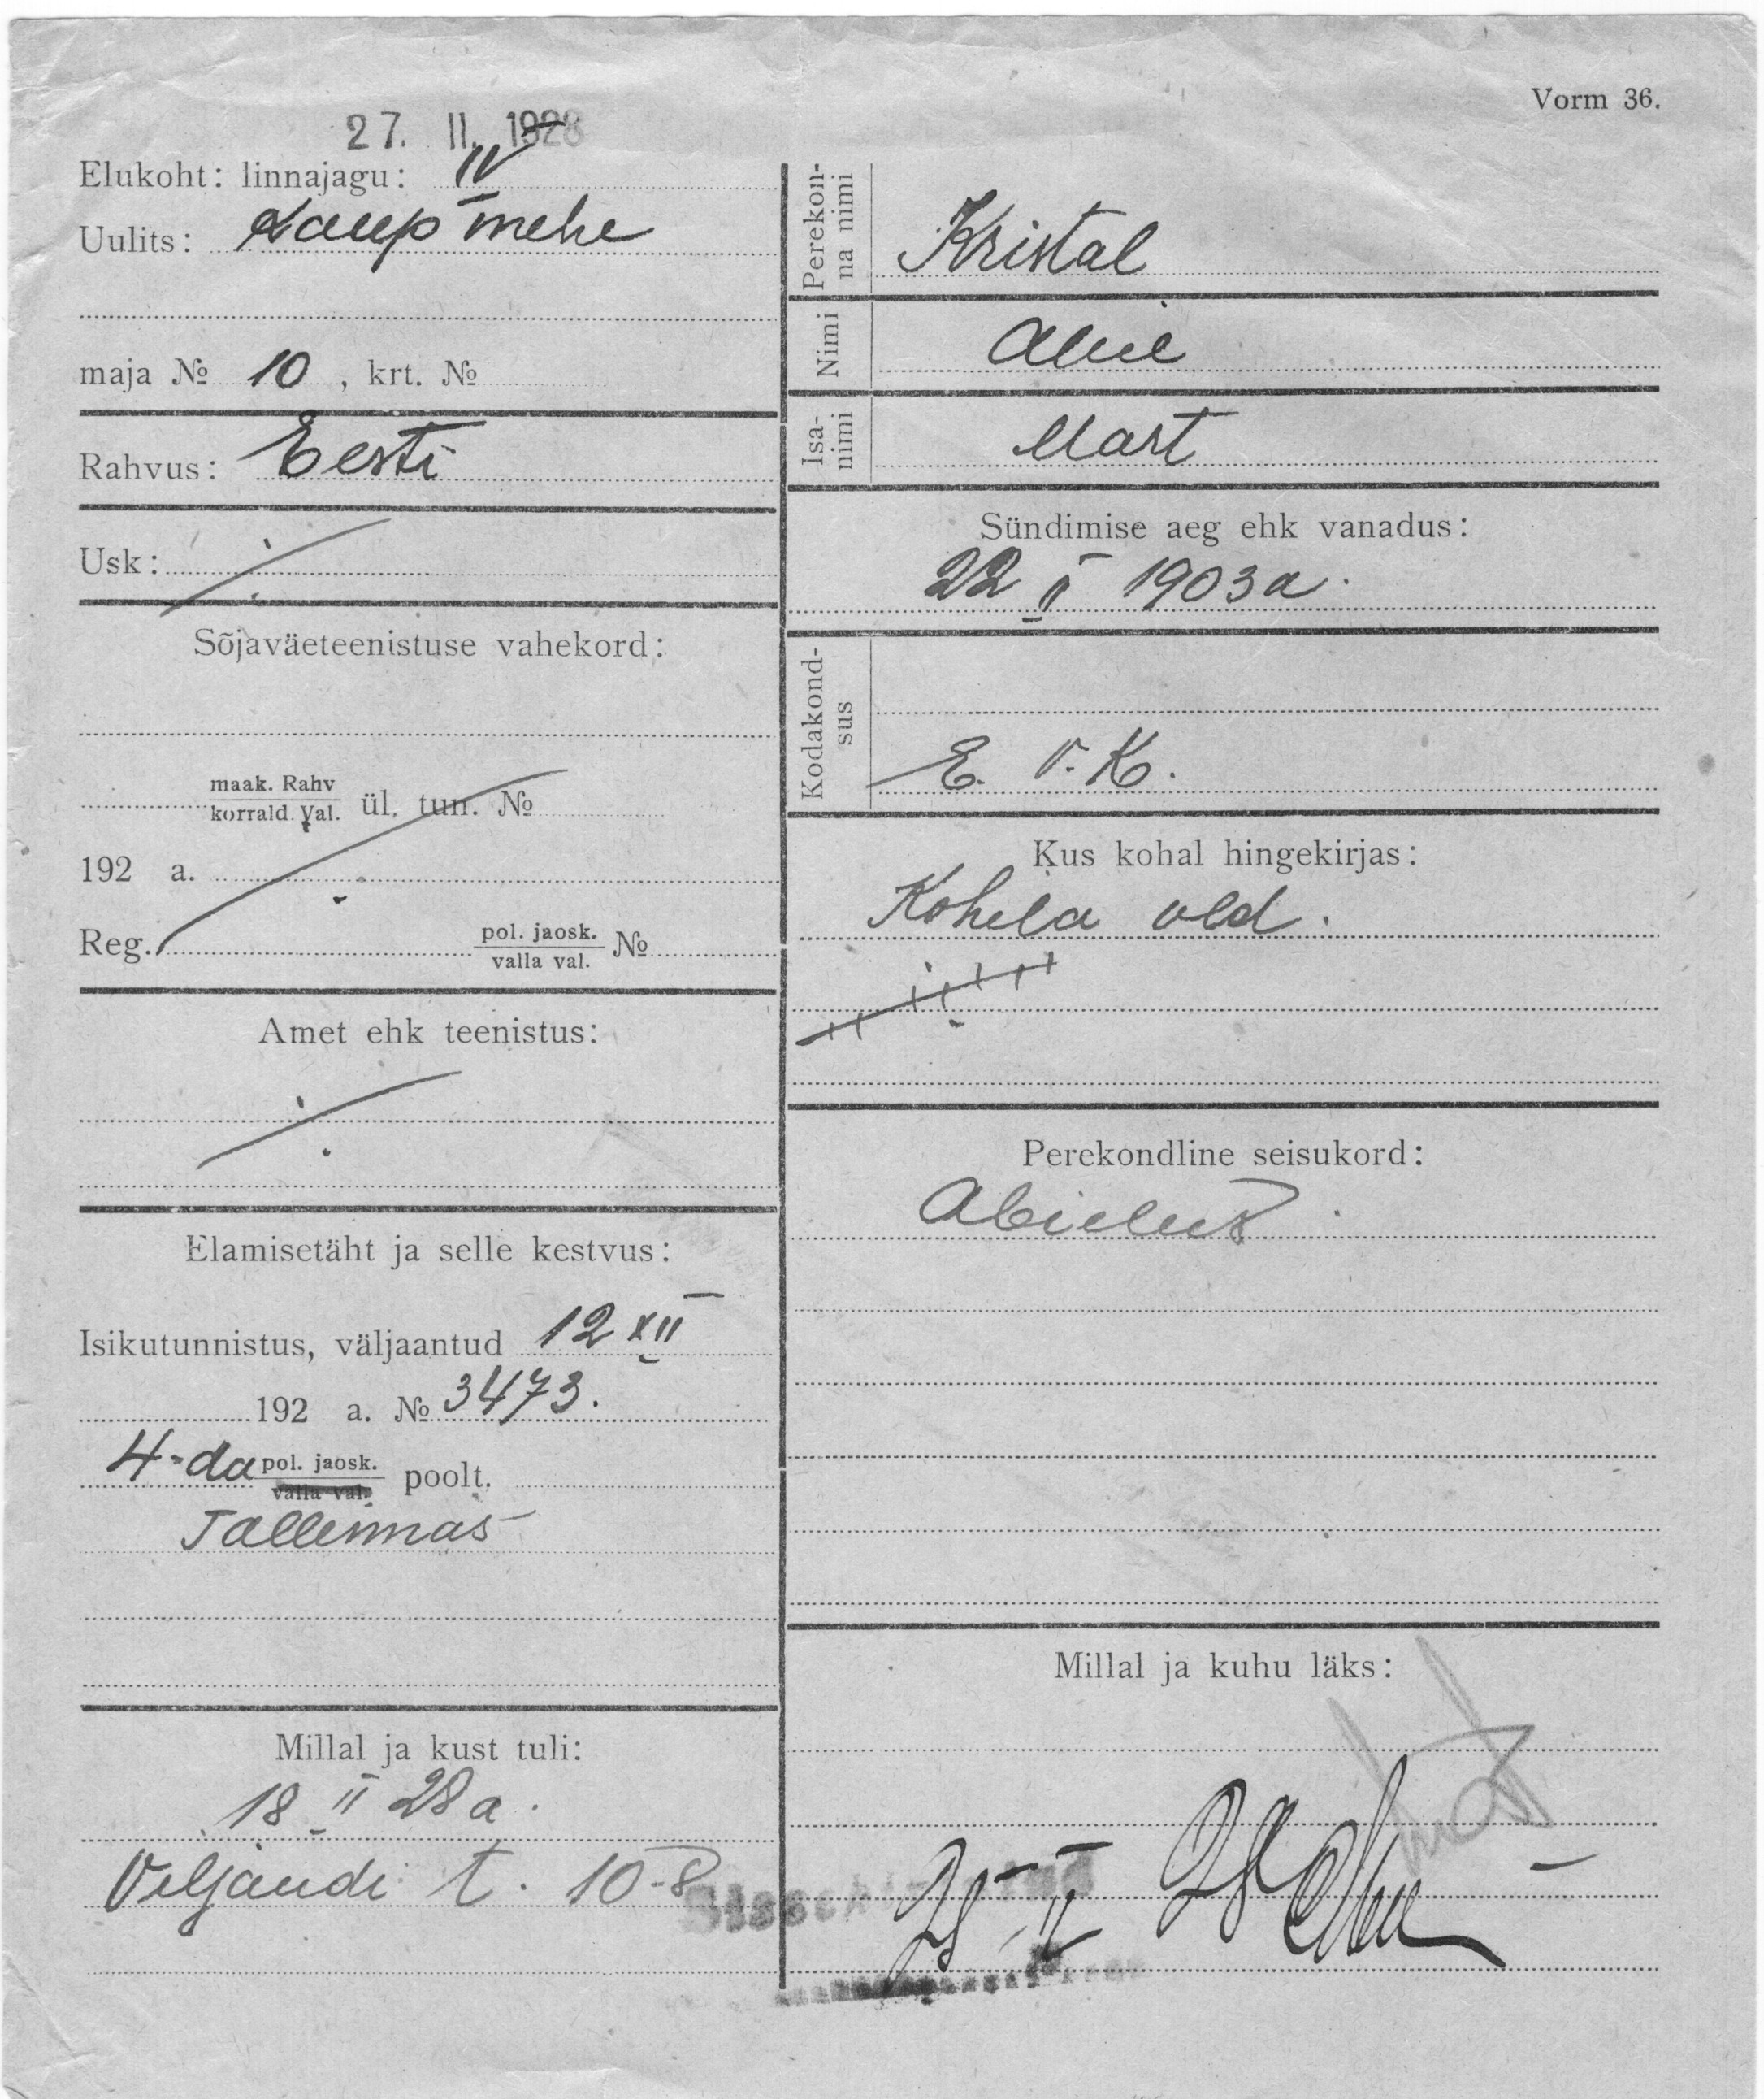 Vorm 36.
27. II. 1928
Elukoht: linnajagu: IV
Uulits: Kaupmehe
maja № 10, krt. №
Rahvus: Eesti
Usk:
Sõjaväeteenistuse vahekord:
maak. Rahv
korrald. Val. ül. tun. №
192 a.
Reg. pol. jaosk. №
valla val.
Amet ehk teenistus:
Elamisetäht ja selle kestvus:
Isikutunnistus, väljaantud 12 XII
192 a. № 3473.
4-da pol. jaosk. poolt.
valla val.
Tallinnas
Millal ja kust tuli:
18 II 28 a.
Viljandi t. 10-8
Perekon-
na nimi
Kristal
Nimi
Isa-
nimi
Mart
Sündimise aeg ehk vanadus:
22 II 1903 a.
Kodakond-
sus
E. V. K.
Kus kohal hingekirjas:
Kohila vld.
Perekondline seisukord:
Abielus
Millal ja kuhu läks: